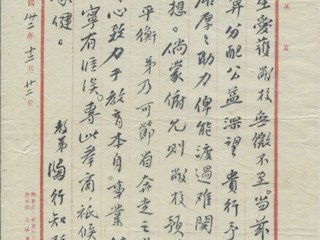 生愛護敝校無微不至。當茲
算分配公益深望 貴行予
厚之助力俾能渡過难関
想。倘蒙俯允則敝校預
平衡 弟乃可節省奔走之
心致力于教育本身事業
寧有涯涘。專此奉商,祇候
健。
教弟 陶行知
年十二月廿二日